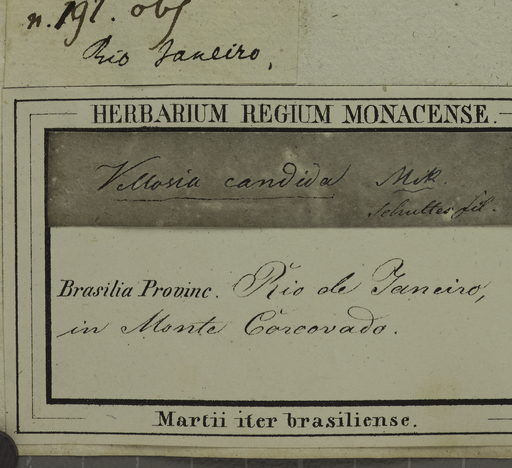 n. 191. obs
Rio Janeiro,
HERBARIUM REGIUM MONACENSE.
Vellosia candida Mik.
Schultes fil.
Brasilia Provinc. Rio de Janeiro,
in Monte Corcovado.
Martii iter brasiliense.